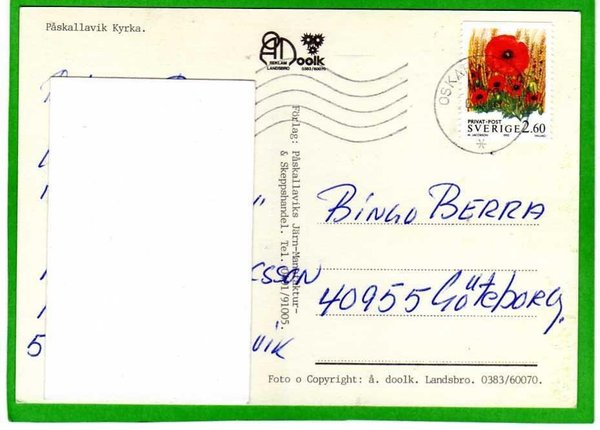 Påskallavik Kyrka.
AD doolk
REKLAM
LANDSBRO 0383/60070
OSKA
PRIVAT·POST
SVERIGE 2.60
Förlag: Påskallaviks Järn-Manufaktur-
& Skeppshandel. Tel. 91005.
BINGO BERRA
40955 Göteborg.
SSON
5 VIK
Foto o Copyright: å. doolk. Landsbro. 0383/60070.